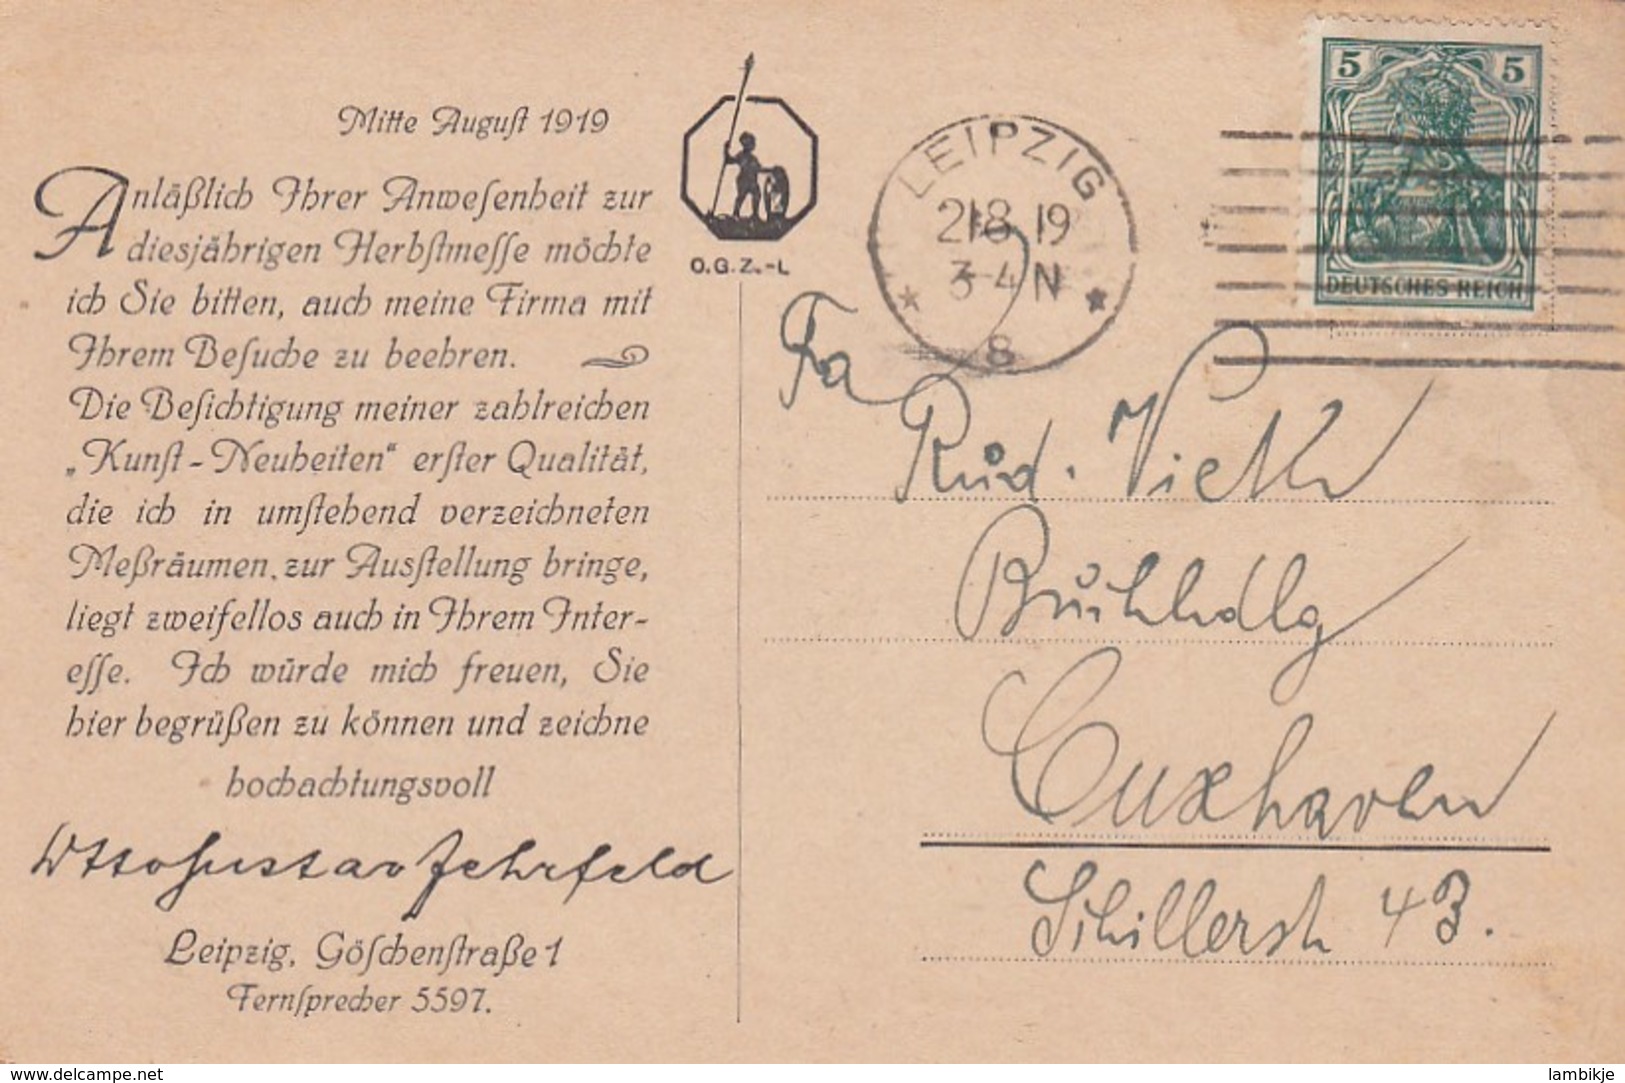 Mitte August 1919
Anläßlich Ihrer Anwesenheit zur
diesjährigen Herbstmesse möchte
ich Sie bitten, auch meine Firma mit
Ihrem Besuche zu beehren.
Die Besichtigung meiner zahlreichen
„Kunst-Neuheiten“ erster Qualität,
die ich in umstehend verzeichneten
Meßräumen, zur Ausstellung bringe,
liegt zweifellos auch in Ihrem Inter-
esse. Ich würde mich freuen, Sie
hier begrüßen zu können und zeichne
hochachtungsvoll
Otto Gustav Zehrfeld
Leipzig, Göschenstraße 1
Fernsprecher 5597.
O.G.Z.-L
LEIPZIG
21 8 19
3-4 N
* *
8
5 5
DEUTSCHES REICH
Fa
Rud. Vieth
Buchhdlg
Cuxhaven
Schillerstr 43.
delcampe.net
lambikje